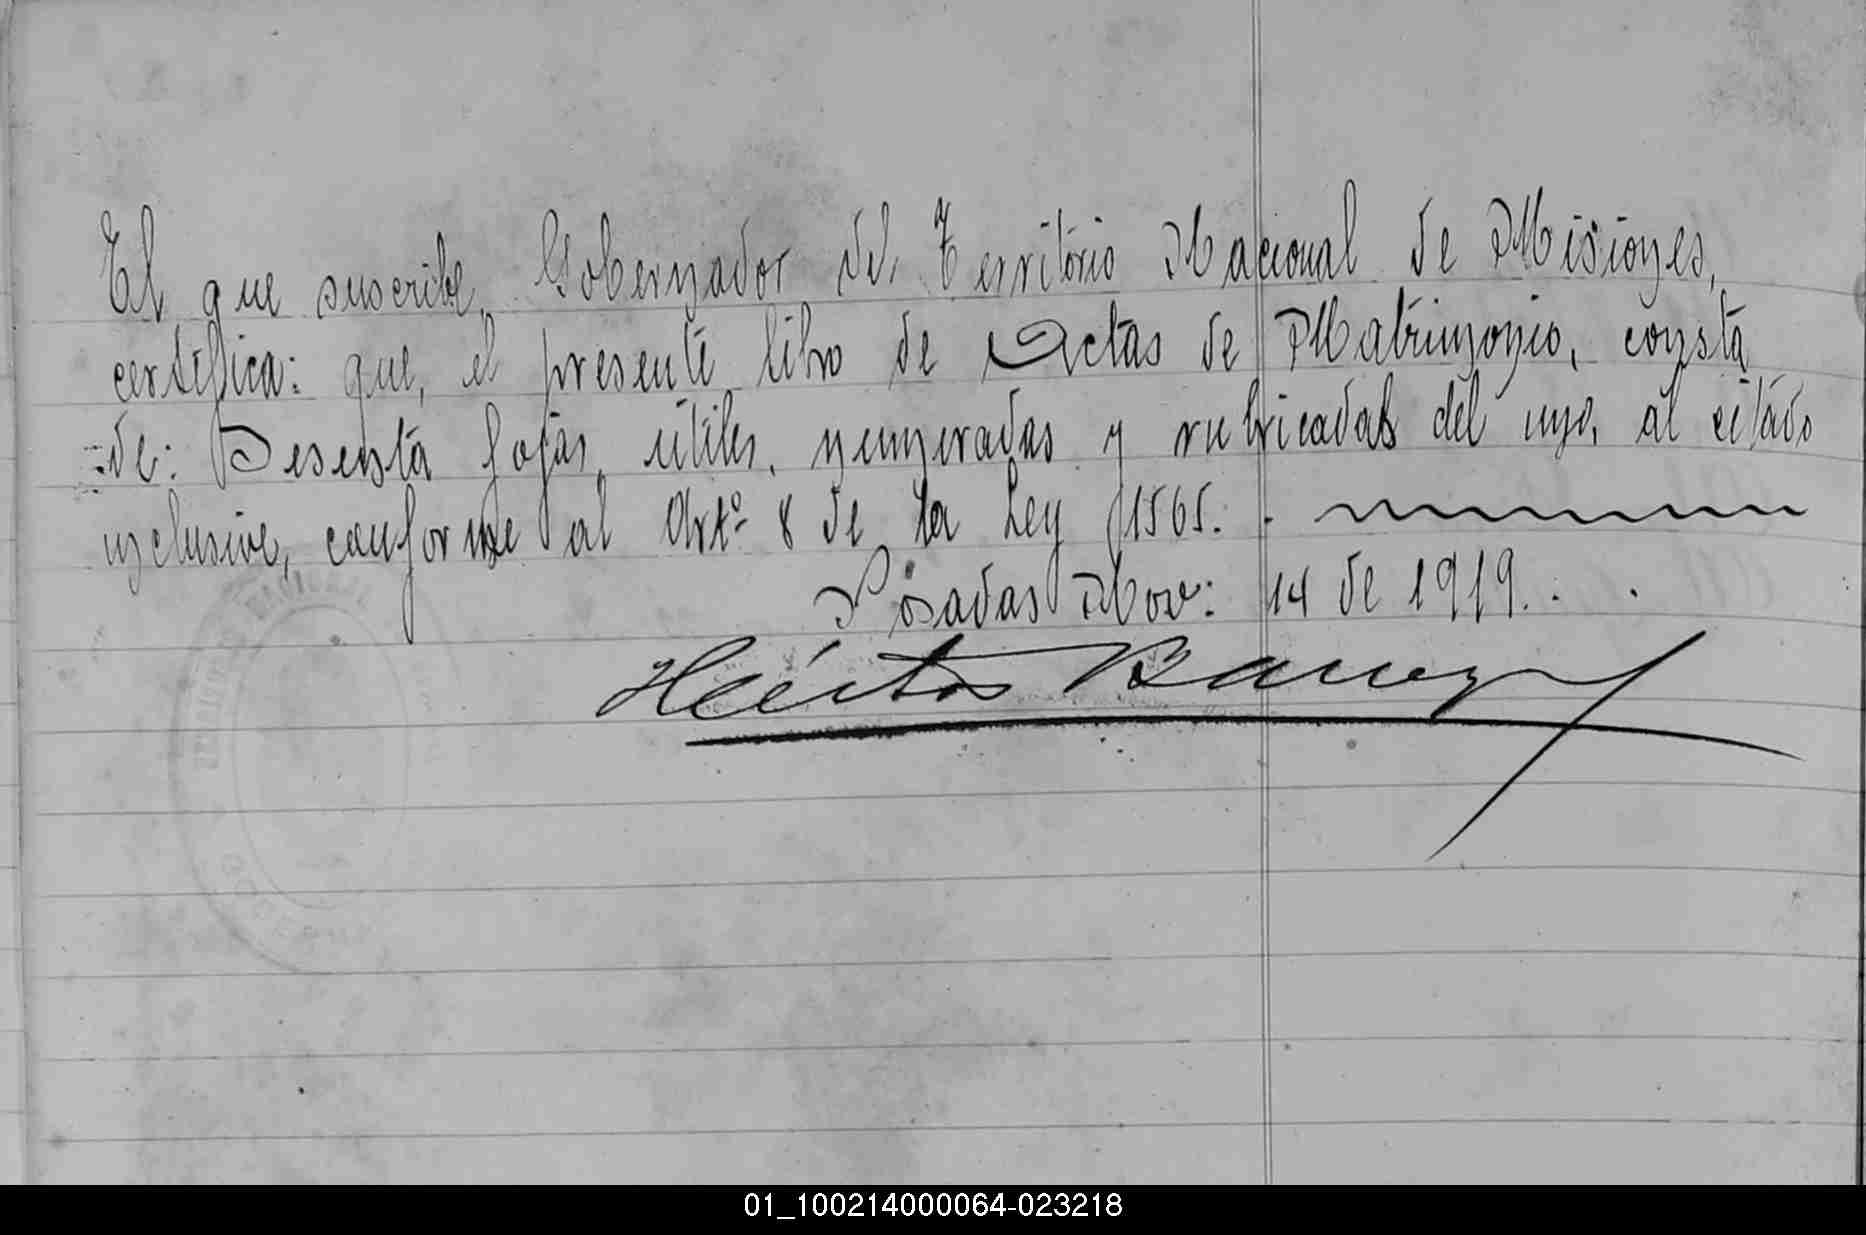 El que suscribe, Gobernador del Territorio Nacional de Misiones,
certifica: que, el presente libro de Actas de Matrimonio, consta
de: Sesenta fojas, útiles, numeradas y rubricadas del uno, al citado
inclusive, conforme al Artº 8 de la Ley 1565. .
Posadas Nov: 14 de 1919. . .
Héctor Barreyro
NACIONAL
01_100214000064-023218